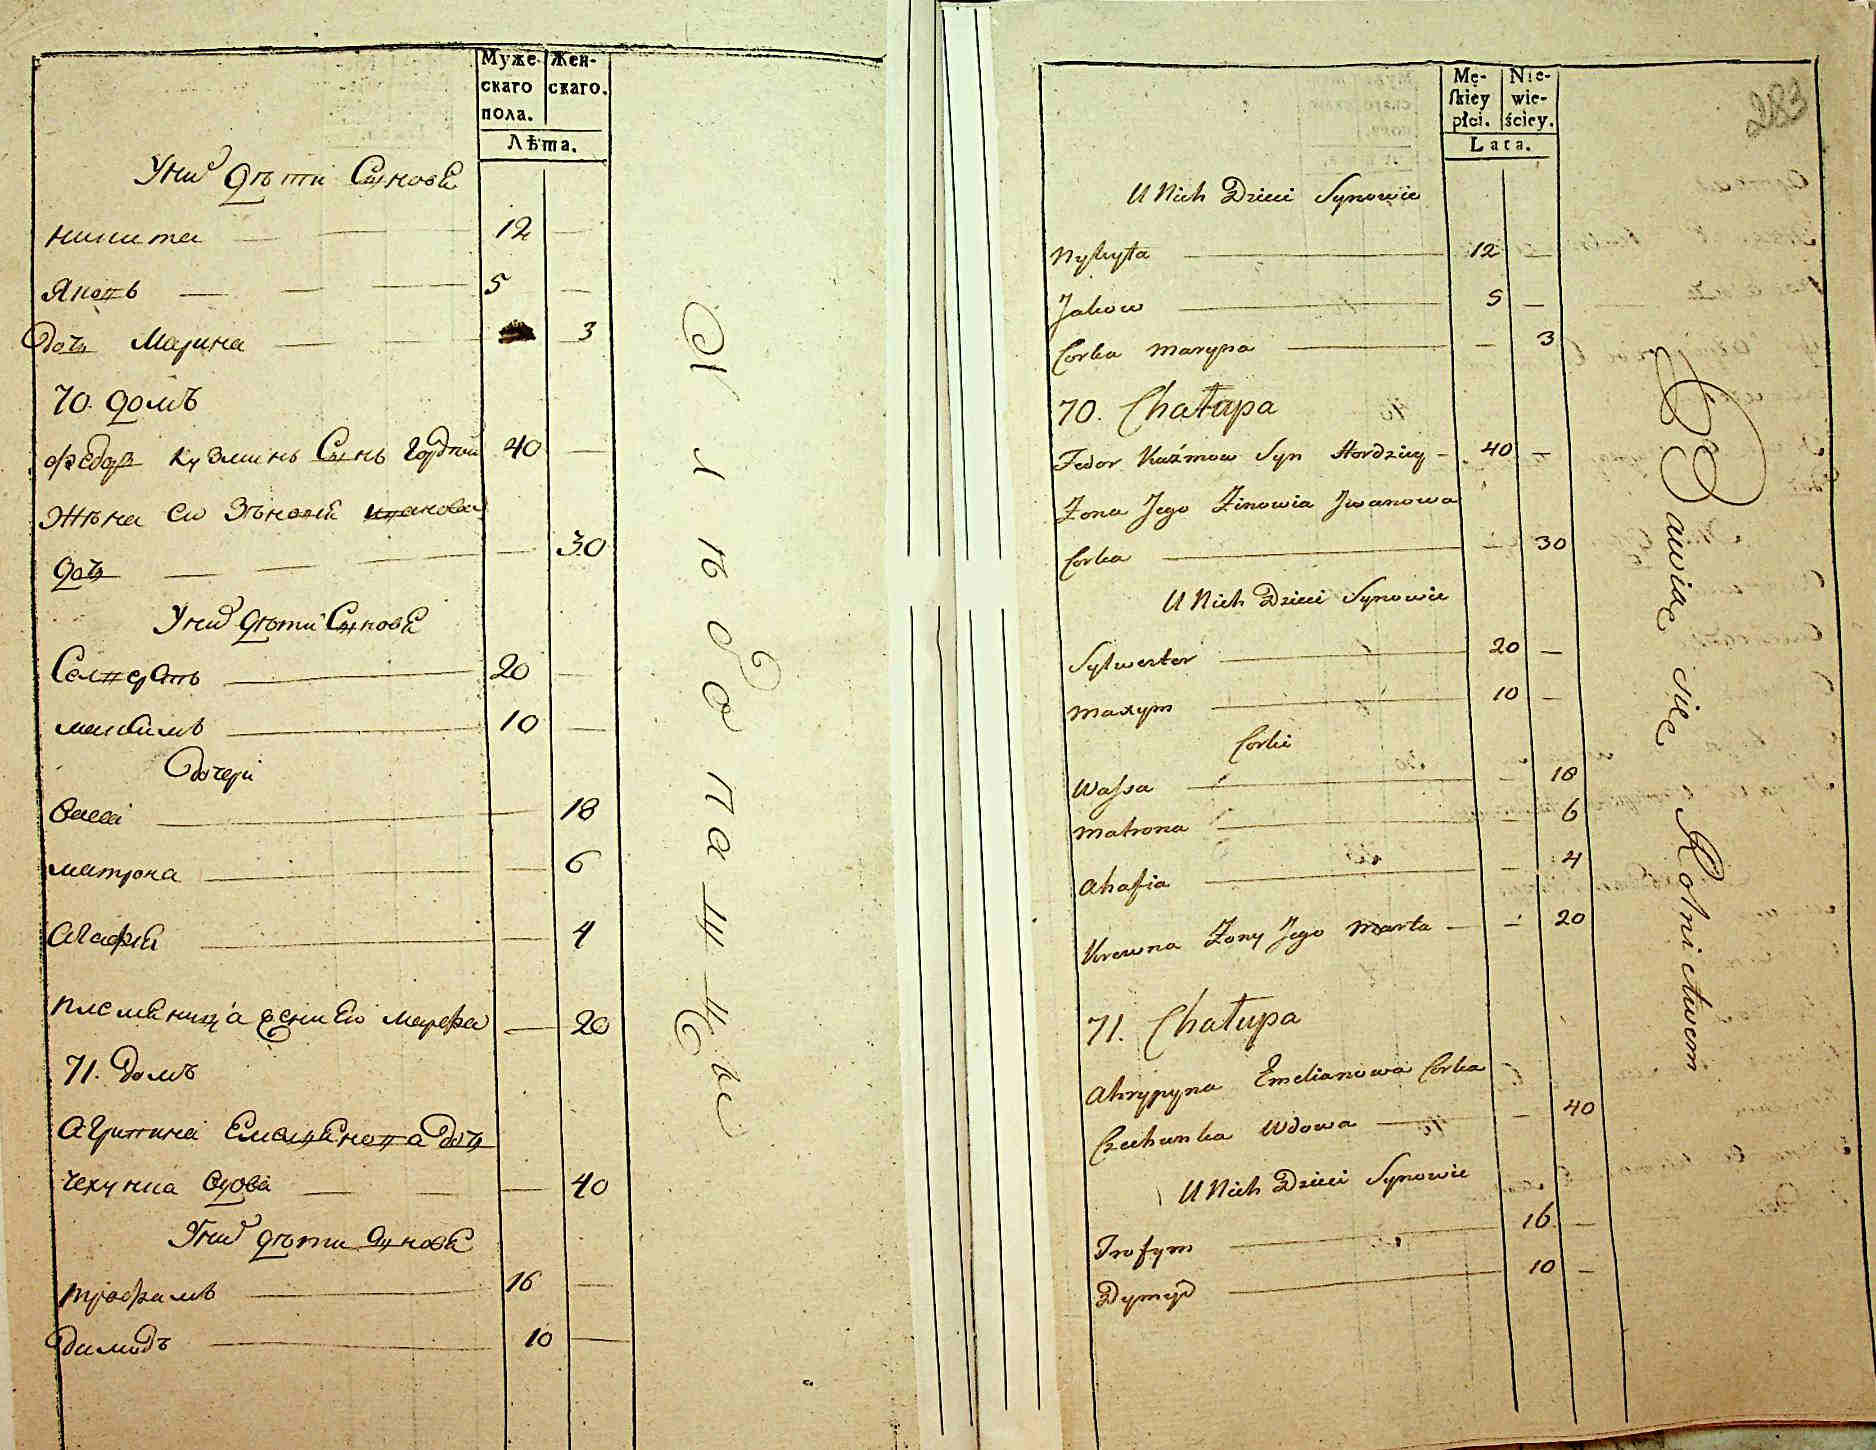 Муже- Жен-
скаго скаго.
пола.
Лѣта.
У них дѣти Сынови
никита — 12 —
Яковъ — 5 —
Дочь Марина — 3
70. домъ
Федоръ Кузминъ Сынъ Гордѣй 40 —
Жена ею Зѣновия ивановa
дочь — — 30
У них дѣти Сынови
Селвестръ — 20 —
максимъ — 10 —
Дочери
Васса — — 18
матрона — — 6
Агафия — — 4
племеница жени ею Марфа — 20
71. домъ
Агрипина Емелианова дочь
Чехунка вдова — — 40
У них дѣти сынови
трофимъ — 16 —
Димидъ — 10 —
хлѣбопашцы
Mę- Nie-
skiey wie-
płci. ściey.
Lata.
283
U Nich Dzieci Synowie
Nykyta — 12 —
Jakow — 5 —
Corka Maryna — — 3
70. Chałupa
Fedor Kuźmow Syn Hordziey — 40 —
Żona Jego Zinowia Jwanowa
Corka — — 30
U Nich Dzieci Synowie
Sylwester — 20 —
Maxym — 10 —
Corki
Wassa — — 18
Matrona — — 6
Ahafia — — 4
Krewna Żony Jego Marta — — 20
71. Chałupa
Ahrypyna Emelianowa Corka
Czechunka Wdowa — — 40
U Nich Dzieci Synowie
Trofym — 16 —
Dymyd — 10 —
Bawiąc się Rolnictwem